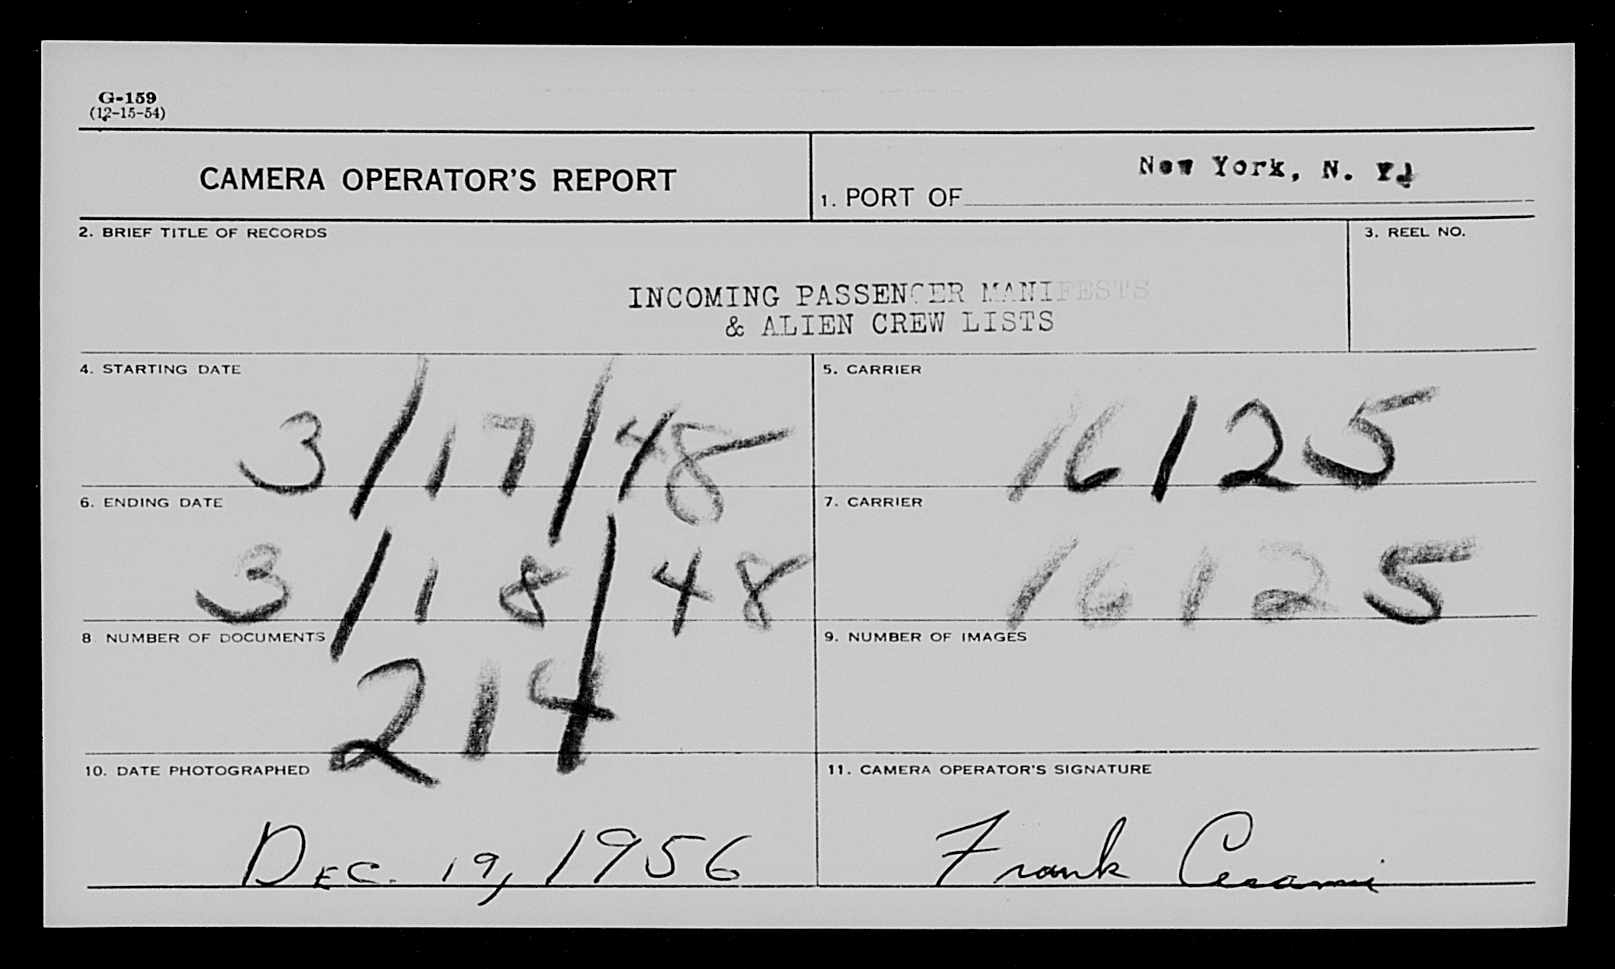 G-159
(12-15-54)
CAMERA OPERATOR'S REPORT
1. PORT OF New York, N. Y.
2. BRIEF TITLE OF RECORDS
3. REEL NO.
INCOMING PASSENGER MANIFESTS
& ALIEN CREW LISTS
4. STARTING DATE
3/17/48
5. CARRIER
16125
6. ENDING DATE
3/18/48
7. CARRIER
16125
8 NUMBER OF DOCUMENTS
214
9. NUMBER OF IMAGES
10. DATE PHOTOGRAPHED
DEC. 19, 1956
11. CAMERA OPERATOR'S SIGNATURE
Frank Cesami